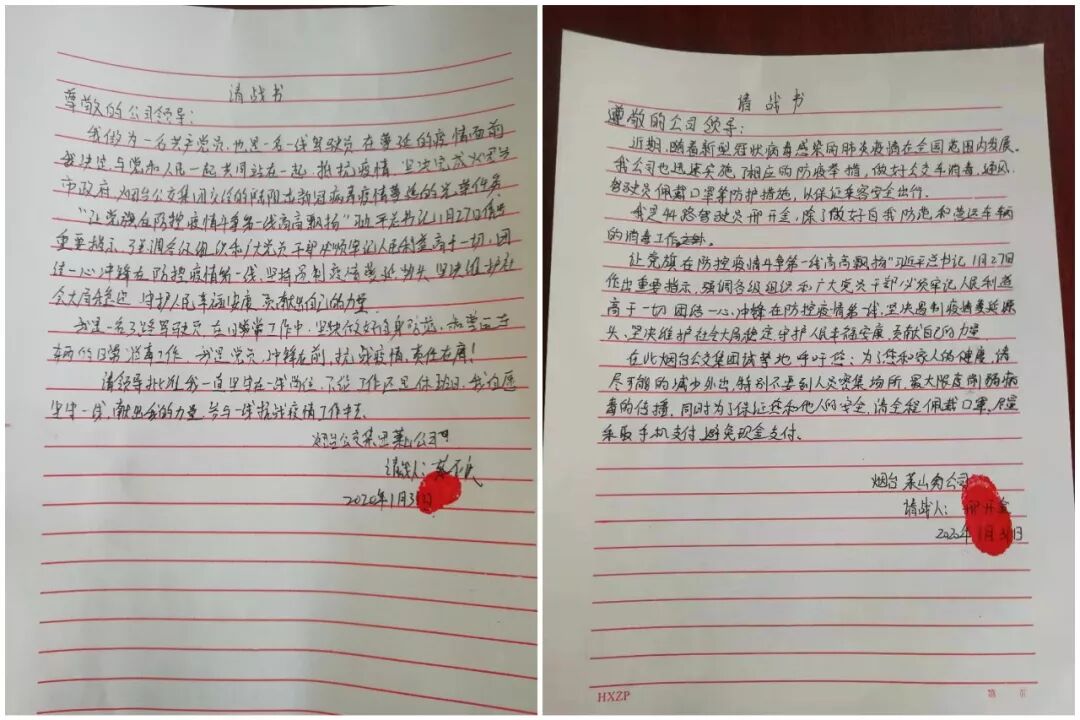 请战书
尊敬的公司领导：
我做为一名共产党员，也是一名一线驾驶员，在蔓延的疫情面前
我决定与党和人民一起共同站在一起，抵抗疫情，坚决完成
市政府，烟台公交集团交给的阻击新冠病毒疫情蔓延的光荣任务
“让党旗在防控疫情斗争第一线高高飘扬”近平总书记1月27日作出
重要指示，强调各级组织和广大党员干部必须牢记人民利益高于一切，团
结一心冲锋在防控疫情第一线，坚持遏制疫情蔓延势头，坚决维护社
会大局稳定，守护人民幸福安康，贡献出自己的力量
我是一名驾驶员，在日常工作中，坚持做好自身防范，和营运车
车辆的日常消毒工作，我是党员，冲锋在前，抗战疫情，责任在肩！
请领导批准我一直坚守在一线岗位，不管工作还是休班日，我自愿
坚守一线，献出我的力量，参与一线抗战疫情工作中去。
烟台公交集团莱山公司
请战人：
2020年1月31日
请战书
尊敬的公司领导：
近期，随着新型冠状病毒感染肺炎疫情在全国范围内发展，
我公司也迅速实施了相应的防疫举措，做好公交车消毒、通风、
驾驶员佩戴口罩等防护措施，以保证乘客安全出行。
我是44路驾驶员邢开金，除了做好自我防范，和营运车辆
的消毒工作之外。
让党旗在防控疫情斗争第一线高高飘扬”习近平总书记1月27日
作出重要指示，强调各级组织和广大党员干部必须牢记人民利益
高于一切 团结一心，冲锋在防控疫情第一线，坚决遏制疫情蔓延源
头，坚决维护社会大局稳定，守护人民幸福安康，贡献自己的力量
在此烟台公交集团诚挚地呼吁您：为了您和家人的健康，请
尽可能的减少外出，特别不要到人员密集场所，最大限度削弱病
毒的传播，同时为了保证您和他人的安全，请全程佩戴口罩，尽量
采取手机支付，避免现金支付。
烟台莱山分公司
请战人：邢开金
2020年1月31日
HXZP
第 页